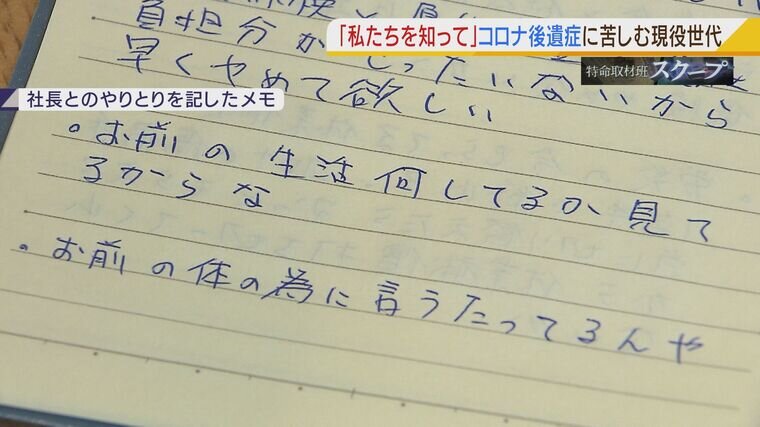 「私たちを知って」コロナ後遺症に苦しむ現役世代
特命取材班 スクープ
社長とのやりとりを記したメモ
負担分が
いないから
早くやめて欲しい
・お前の生活何してるか見て
るからな
・お前の体の為に言うたってるんや